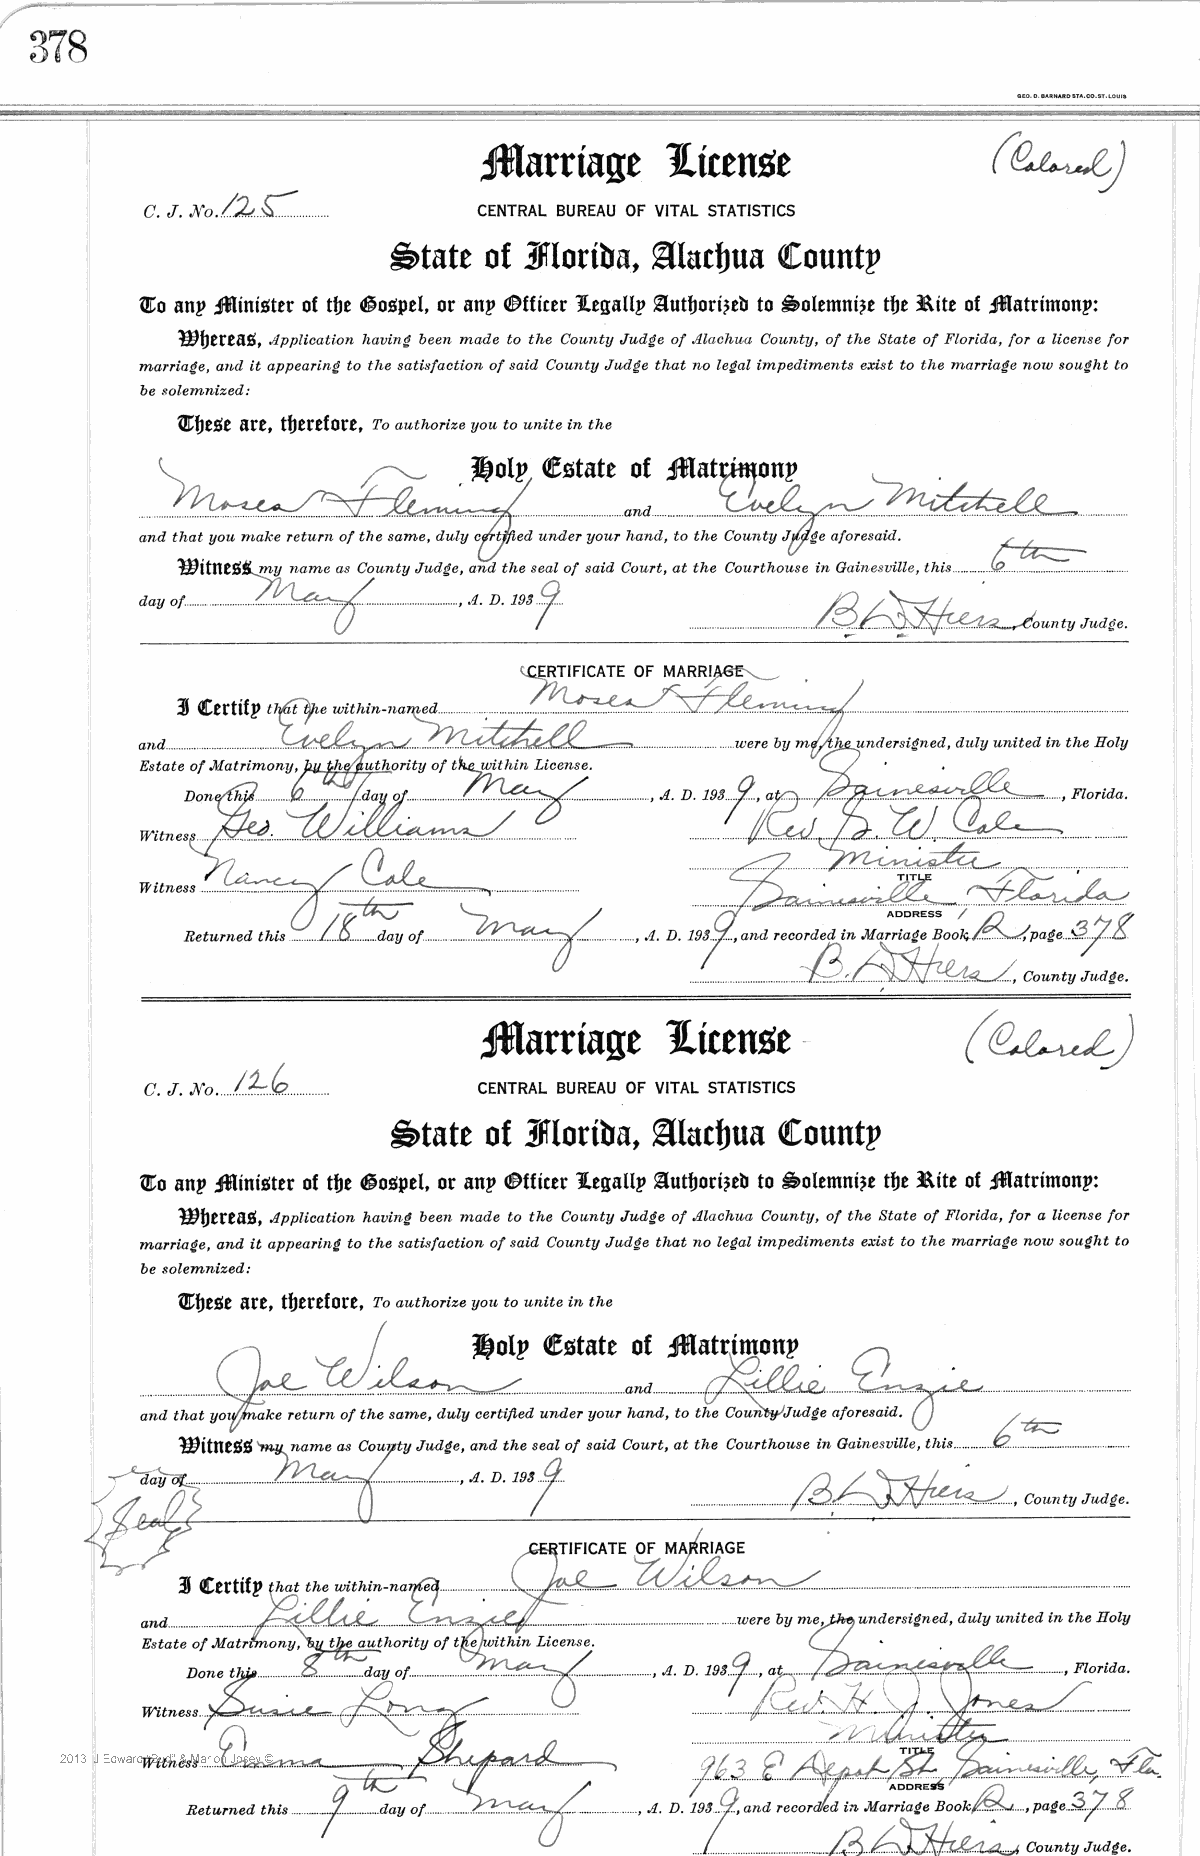 378
GEO. D. BARNARD STA. CO. ST. LOUIS
Marriage License (Colored)
C. J. No. 125 CENTRAL BUREAU OF VITAL STATISTICS
State of Florida, Alachua County
To any Minister of the Gospel, or any Officer Legally Authorized to Solemnize the Rite of Matrimony:
Whereas, Application having been made to the County Judge of Alachua County, of the State of Florida, for a license for
marriage, and it appearing to the satisfaction of said County Judge that no legal impediments exist to the marriage now sought to
be solemnized:
These are, therefore, To authorize you to unite in the
Holy Estate of Matrimony
Moses Fleming and Evelyn Mitchell
and that you make return of the same, duly certified under your hand, to the County Judge aforesaid.
Witness my name as County Judge, and the seal of said Court, at the Courthouse in Gainesville, this 6th
day of May, A. D. 1939
B. L. Hiers, County Judge.
CERTIFICATE OF MARRIAGE
I Certify that the within-named Moses Fleming
and Evelyn Mitchell were by me, the undersigned, duly united in the Holy
Estate of Matrimony, by the authority of the within License.
Done this 6th day of May, A. D. 1939, at Gainesville, Florida.
Witness Geo. Williams Rev. G. W. Cole
Minister
Witness Nancy Cole TITLE
Gainesville, Florida
ADDRESS
Returned this 18th day of May, A. D. 1939, and recorded in Marriage Book R, page 378
B. L. Hiers, County Judge.
Marriage License (Colored)
C. J. No. 126 CENTRAL BUREAU OF VITAL STATISTICS
State of Florida, Alachua County
To any Minister of the Gospel, or any Officer Legally Authorized to Solemnize the Rite of Matrimony:
Whereas, Application having been made to the County Judge of Alachua County, of the State of Florida, for a license for
marriage, and it appearing to the satisfaction of said County Judge that no legal impediments exist to the marriage now sought to
be solemnized:
These are, therefore, To authorize you to unite in the
Holy Estate of Matrimony
Joe Wilson and Lillie Enzie
and that you make return of the same, duly certified under your hand, to the County Judge aforesaid.
Witness my name as County Judge, and the seal of said Court, at the Courthouse in Gainesville, this 6th
day of May, A. D. 1939
Seal B L Hiers, County Judge.
CERTIFICATE OF MARRIAGE
I Certify that the within-named Joe Wilson
and Lillie Enzie were by me, the undersigned, duly united in the Holy
Estate of Matrimony, by the authority of the within License.
Done this 8th day of May, A. D. 1939, at Gainesville, Florida.
Witness Susie Long Rev. H. J. Jones
Minister
2013 J Edward "Bud" & Marion Josey ©
Witness Emma Shepard TITLE
963 E Depot St, Gainesville, Fla.
ADDRESS
Returned this 9th day of May, A. D. 1939, and recorded in Marriage Book R, page 378
B L Hiers, County Judge.